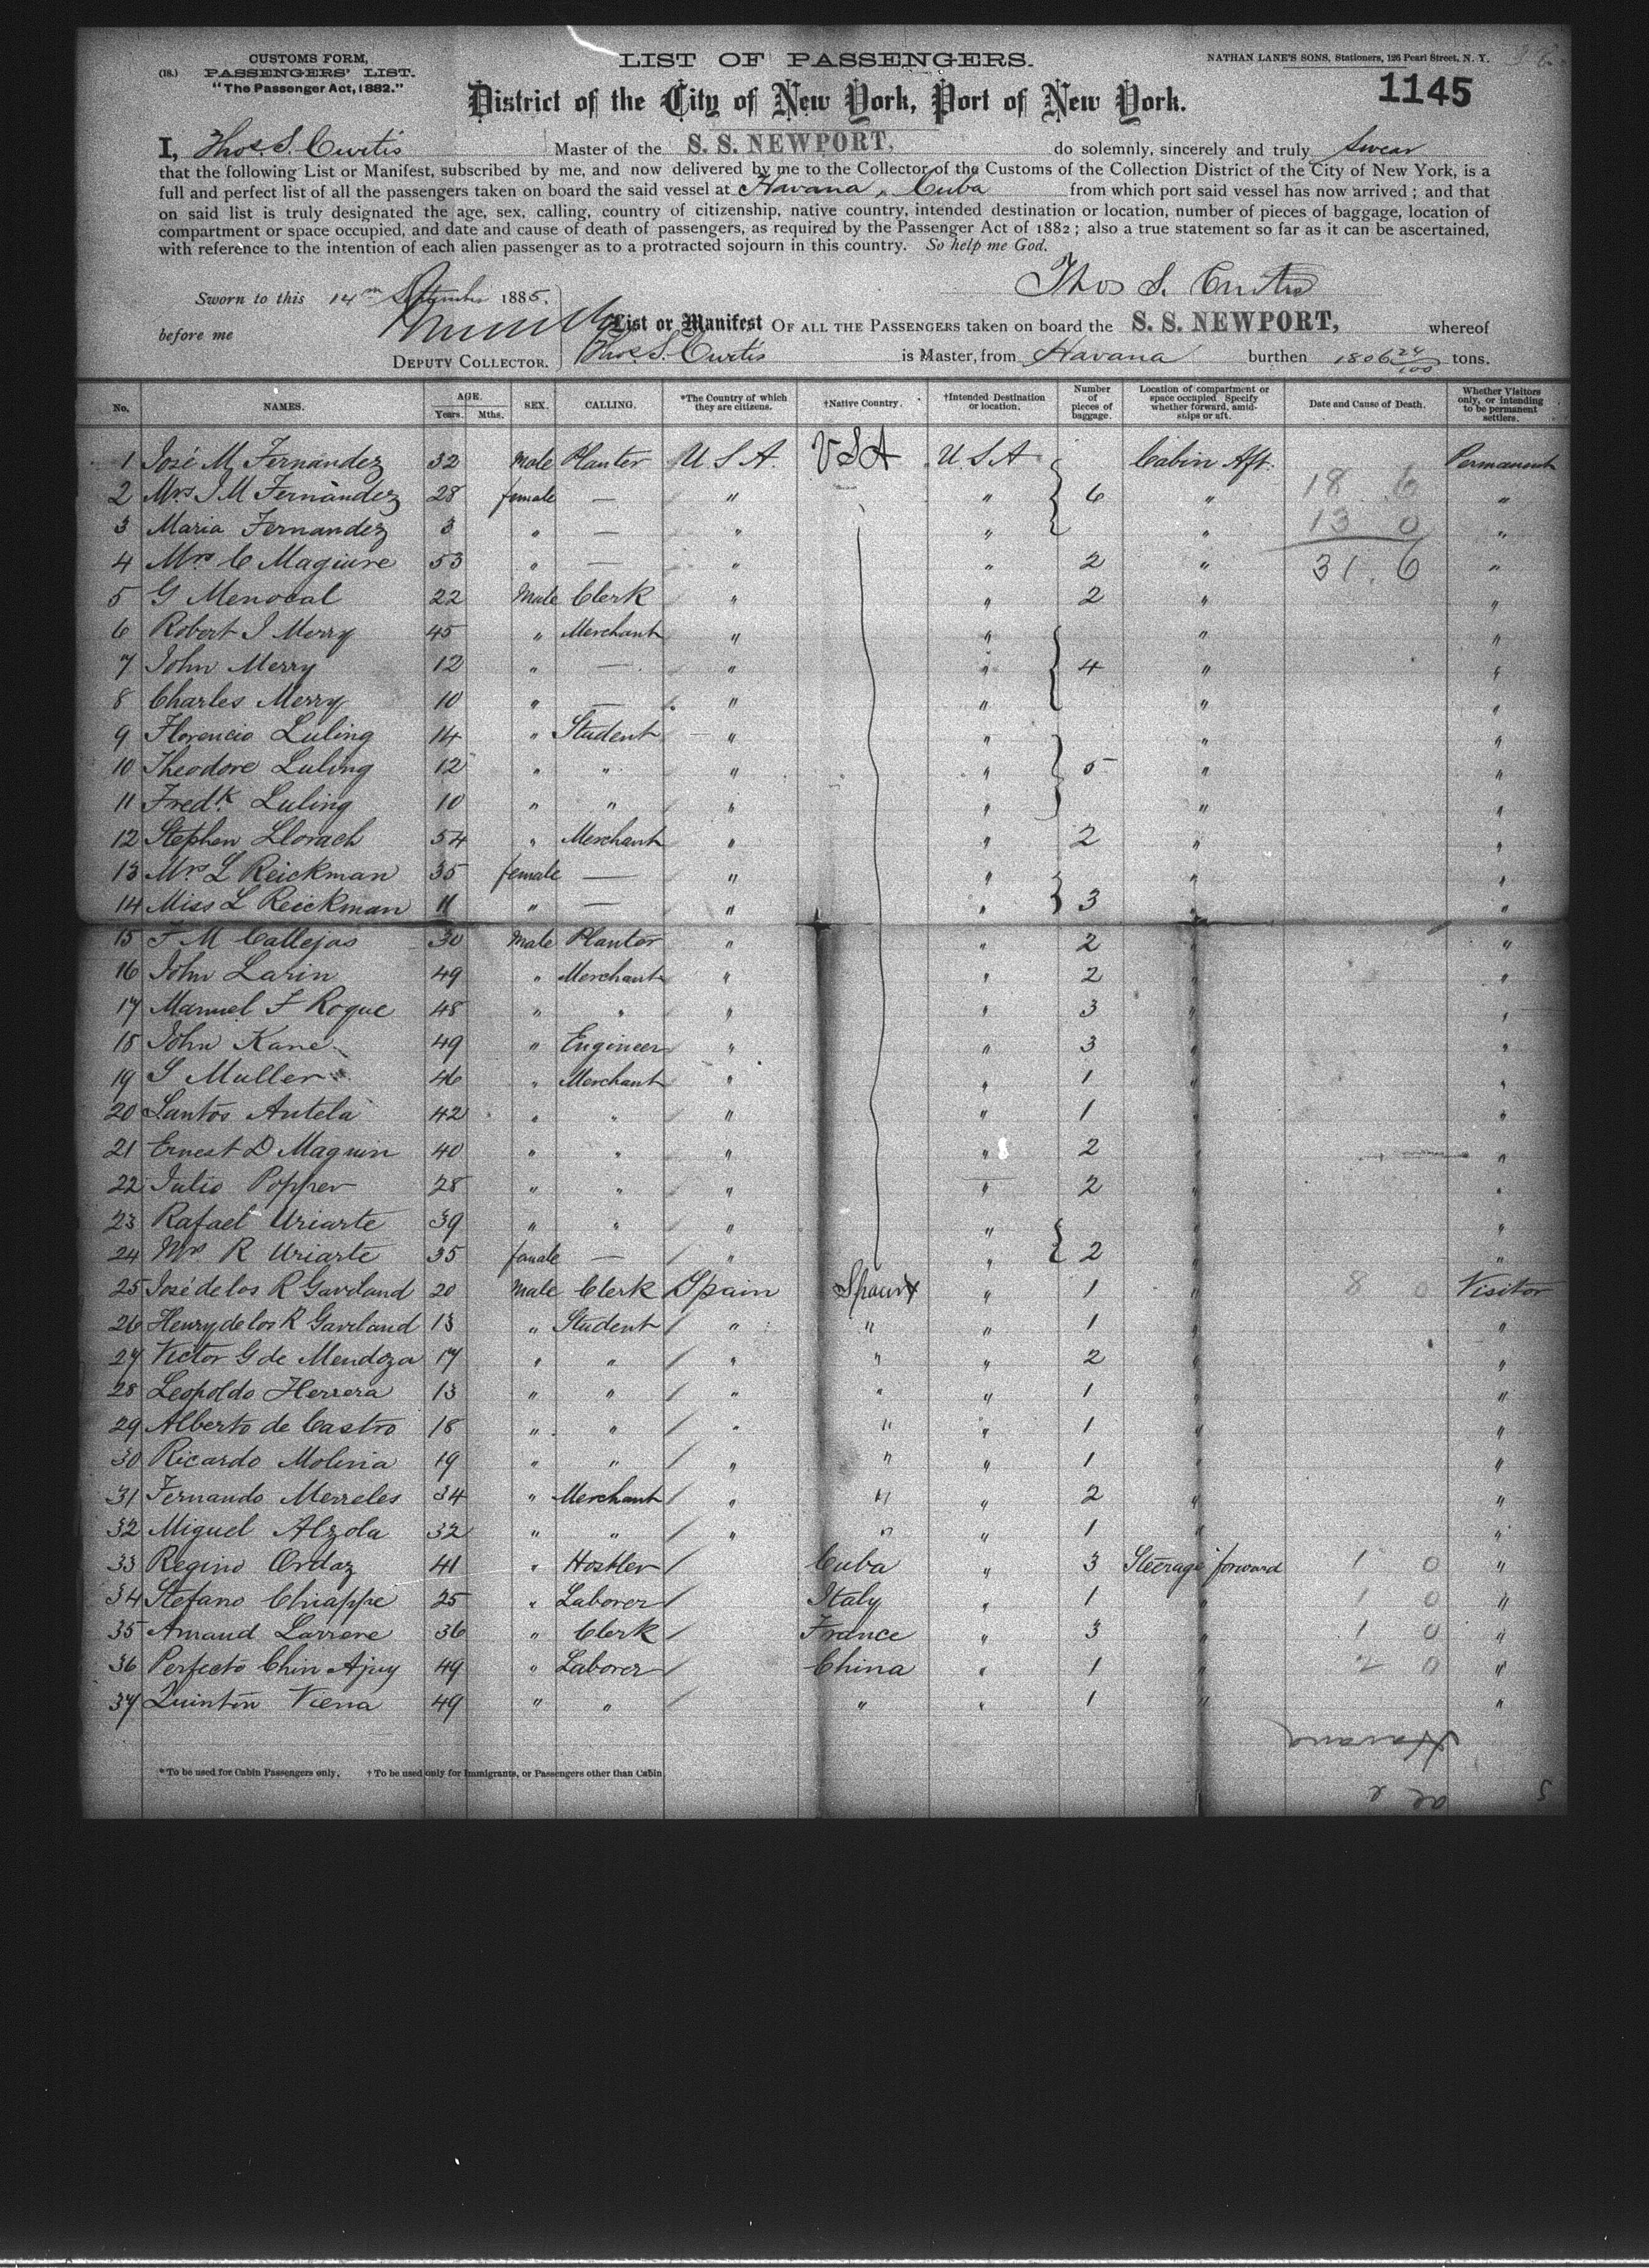 CUSTOMS FORM,
(18.) PASSENGERS' LIST.
"The Passenger Act, 1882."
LIST OF PASSENGERS.
NATHAN LANE'S SONS, Stationers, 126 Pearl Street, N. Y.
1145
District of the City of New York, Port of New York.
I, Thos. S. Curtis Master of the S. S. NEWPORT, do solemnly, sincerely and truly Swear
that the following List or Manifest, subscribed by me, and now delivered by me to the Collector of the Customs of the Collection District of the City of New York, is a
full and perfect list of all the passengers taken on board the said vessel at Havana, Cuba from which port said vessel has now arrived; and that
on said list is truly designated the age, sex, calling, country of citizenship, native country, intended destination or location, number of pieces of baggage, location of
compartment or space occupied, and date and cause of death of passengers, as required by the Passenger Act of 1882; also a true statement so far as it can be ascertained,
with reference to the intention of each alien passenger as to a protracted sojourn in this country. So help me God.
Thos S. Curtis
Sworn to this 14th September 1885,
before me
DEPUTY COLLECTOR.
List or Manifest OF ALL THE PASSENGERS taken on board the S. S. NEWPORT, whereof
Thos. S. Curtis is Master, from Havana burthen 1806 24/100 tons.
No. NAMES. AGE. Years. Mths. SEX. CALLING. *The Country of which they are citizens. †Native Country. †Intended Destination or location. Number of pieces of baggage. Location of compartment or space occupied. Specify whether forward, amidships or aft. Date and Cause of Death. Whether Visitors only, or intending to be permanent settlers.
1 José M Fernandez 32 Male Planter U S A. USA U S A Cabin Aft. Permanent
2 Mrs J M Fernàndez 28 female — " " 6 " 18 6 "
3 Maria Fernandez 3 " — " " " 13 0 "
4 Mrs C Maguire 53 " — " " 2 " 31. 6 "
5 G Menocal 22 Male Clerk " " 2 " "
6 Robert J Merry 45 " Merchant " " " "
7 John Merry 12 " — " " 4 " "
8 Charles Merry 10 " — " " " "
9 Florencio Luling 14 " Student " " " "
10 Theodore Luling 12 " " " " 5 " "
11 Fredk. Luling 10 " " " " " "
12 Stephen Llorach 54 " Merchant " " 2 " "
13 Mrs L Reickman 35 female — " " " "
14 Miss L Reickman 11 " — " " 3 " "
15 F M Callejas 30 Male Planter " " 2 " "
16 John Larin 49 " Merchant " " 2 " "
17 Manuel F Roque 48 " " " " 3 " "
18 John Kane 49 " Engineer " " 3 " "
19 S Muller 46 " Merchant " " 1 " "
20 Santos Antela 42 " " " " 1 " "
21 Ernest D Maguin 40 " " " " 2 " "
22 Julio Popper 28 " " " " 2 " "
23 Rafael Uriarte 39 " " " " " "
24 Mrs R Uriarte 35 female — " " 2 " "
25 José de los R Gaviland 20 Male Clerk Spain Spain " 1 " 8 0 Visitor
26 Henry de los R Gaviland 13 " Student " " " 1 " "
27 Victor G de Mendoza 17 " " " " " 2 " "
28 Leopoldo Herrera 13 " " " " " 1 " "
29 Alberto de Castro 18 " " " " " 1 " "
30 Ricardo Molina 19 " " " " " 1 " "
31 Fernando Merreles 34 " Merchant " " " 2 " "
32 Miguel Alzola 32 " " " " " 1 " "
33 Regino Ordaz 41 " Hostler Cuba " 3 Steerage forward 1 0 "
34 Stefano Chiappe 25 " Laborer Italy " 1 " 1 0 "
35 Amaud Larrere 36 " Clerk France " 3 " 1 0 "
36 Perfecto Chin Ajuy 49 " Laborer China " 1 " 2 0 "
37 Quintin Viena 49 " " " " 1 " "
Havana
*To be used for Cabin Passengers only. †To be used only for Immigrants, or Passengers other than Cabin